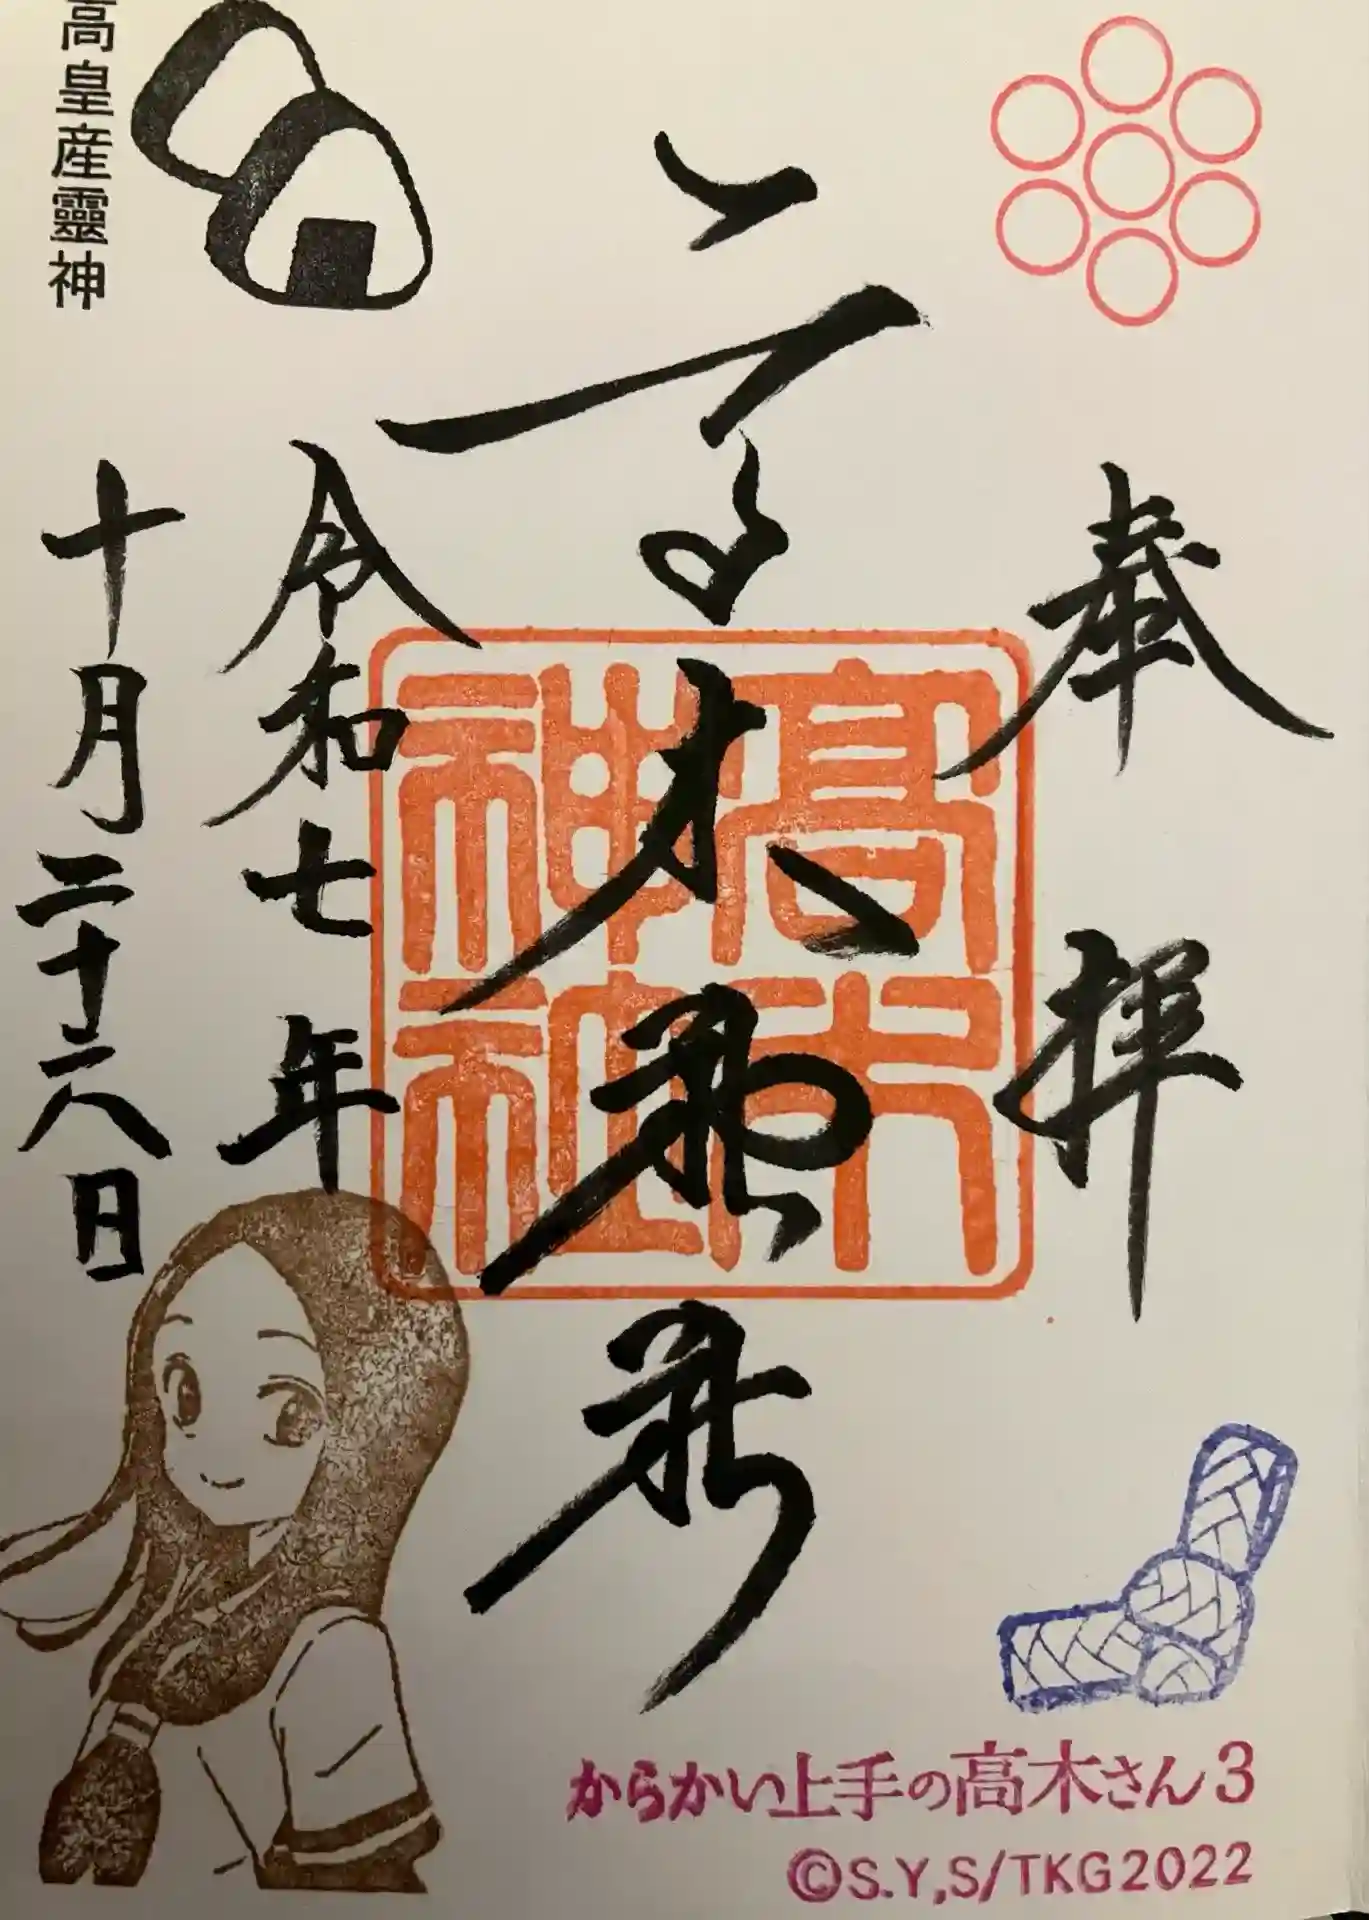 奉拝
高木神社
高木神社
令和七年
十月二十六日
高皇産靈神
からかい上手の高木さん3
©S.Y,S/TKG2022